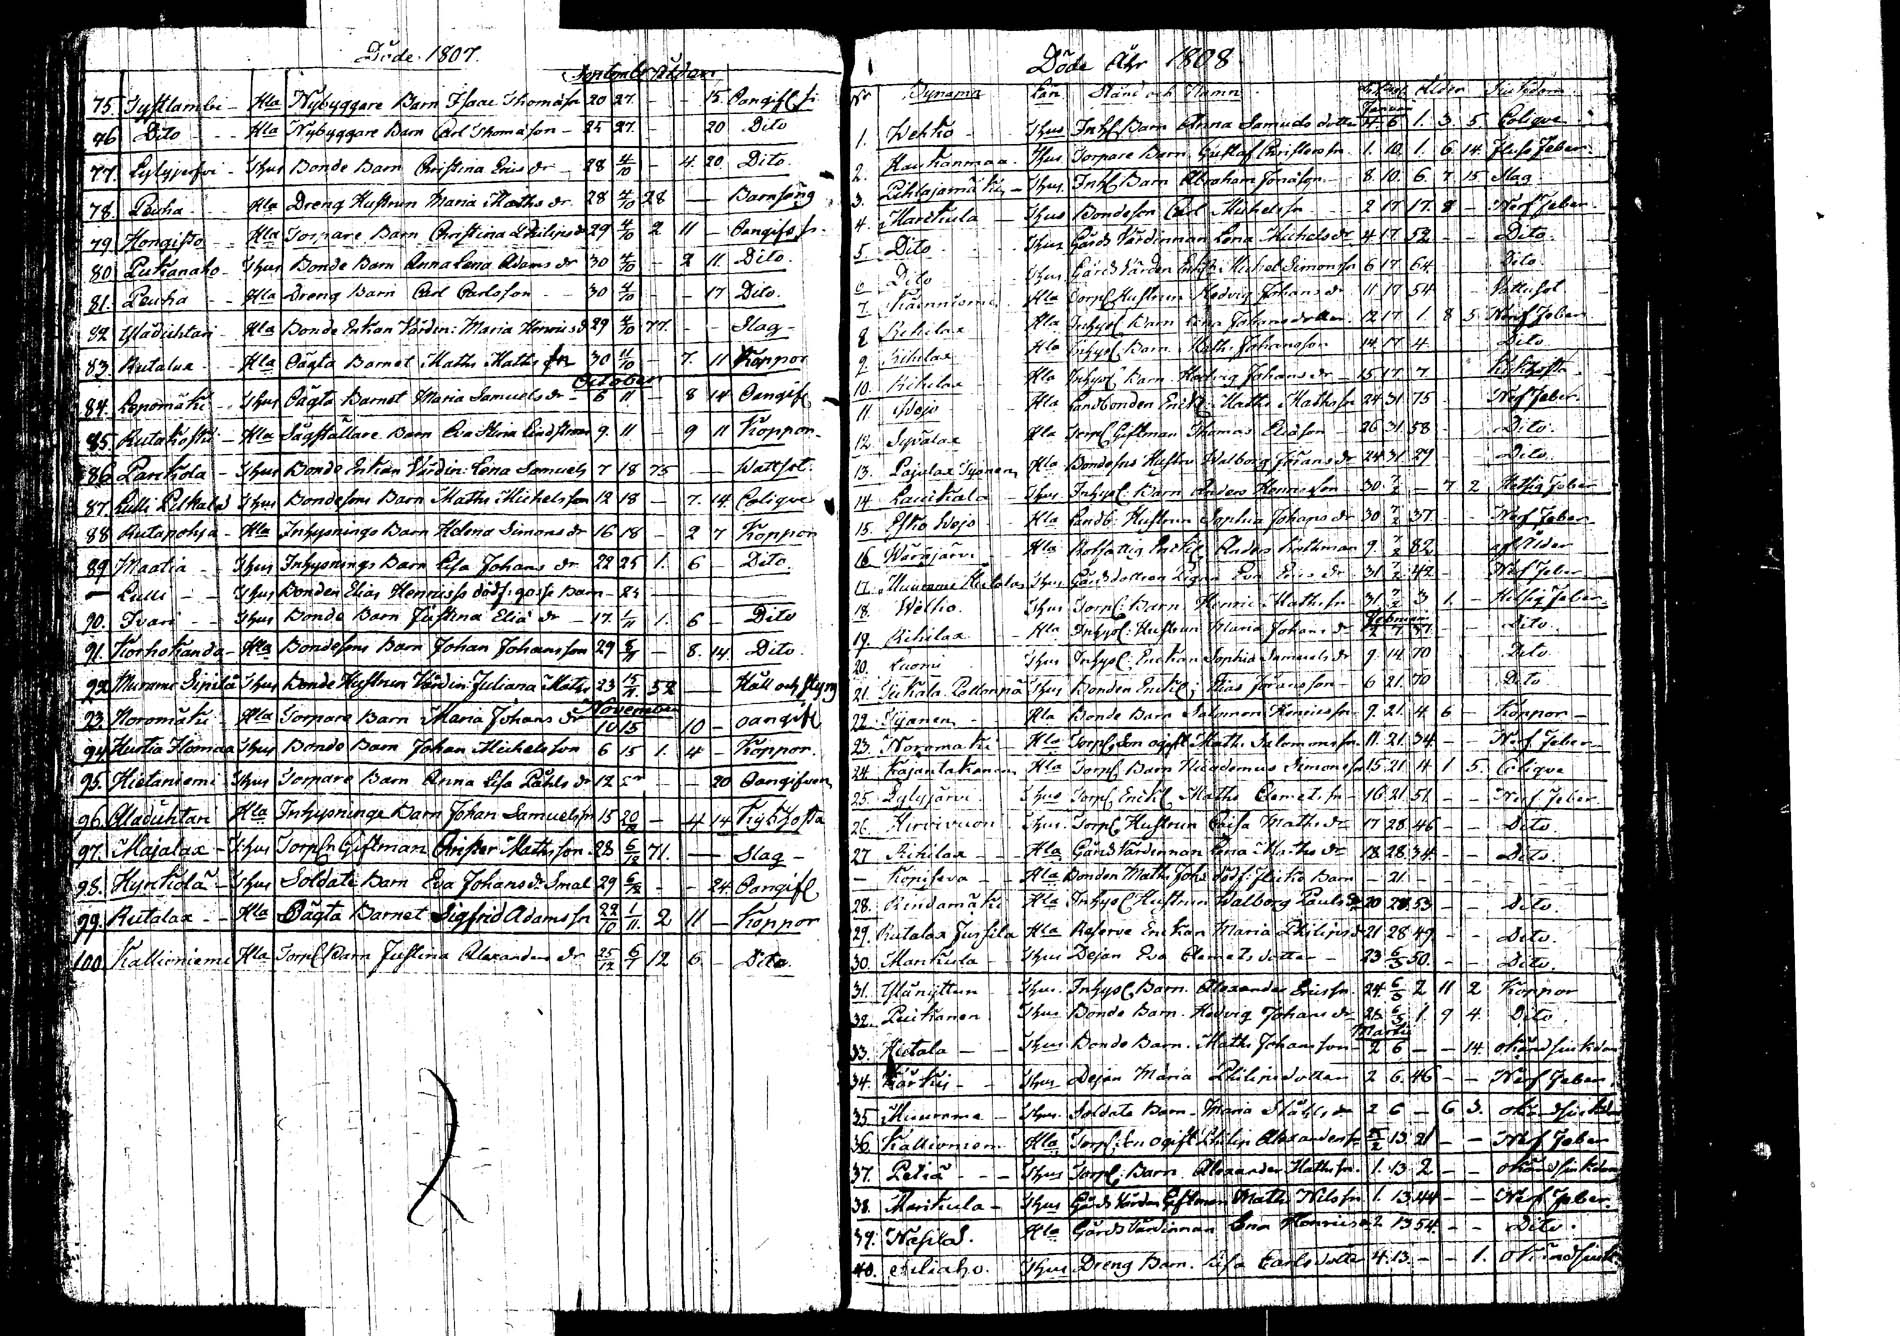 Döde 1807.
September Åldern
75. Tystlambi - Kla Nybyggare Barn Isaac Thomass 20 27. - - 15. Oangifl. s.
76 Dito - - Kla Nybyggare Barn Carl Thomason - 25 27. - 20 Dito
77. Lylyjerfvi - Thus Bonde Barn Christina Erics dr - 28 4/10 - 4. 20. Dito.
78. Peuha - - Kla Dreng Hustrun Maria Maths dr 28 4/10 28 - Barnsäng
79 Hongisto - Kla Torpare Barn Christina Philips dr 29 4/10 2 11 - Oangifs s.
80. Pukanaho - Thus Bonde Barn Anna Lena Adams dr 30 4/10 - 2 11. Dito.
81. Peuha - - Kla Dreng Barn Carl Carlsson - - 30 4/10 - - 17 Dito.
82 Ylädihtari - Kla Bonde Enkan Värdin: Maria Henrics d 29 4/10 77. - - Slag -
83. Rutalax - - Kla Oägta Barnet Maths Maths sn 30 11/10 - 7. 11 Koppor
October
84. Leponmäki - Thus Oägta Barnet Maria Samuels dr - 6 11 - 8 14 Oangifl
85 Rutakoski - Kla Sågställare Barn Eva Stina Lindström 9. 11 - 9 11 Koppor -
86 Parkkola - Thus Bonde Enkan Värdin: Lena Samuels 7 18 75 - - Wattsot.
87. Lulli Pelkala Thus Bondesons Barn Maths Michelsson 12 18 - 7. 14. Colique
88 Rutapohja - Kla Inhysnings Barn Helena Simons dr 16 18 - 2 7 Koppor
89 Maatia - Thus Inhysnings Barn Lisa Johans dr 22 25 1. 6 - Dito.
- Lulli - - Thus Bonden Elias Henrics dödf: gosse Barn - 25 - - - -
90. Ivari - - Thus Bonde Barn Justina Eliä dr - 17. 1/11 1. 6 - Dito
91. Korhokanda - Kla Bondesons Barn Johan Johansson 29 8/11 - 8. 14. Dito.
92 Murame Sipilä Thus Bonde Hustrun Värdin: Juliana Maths 23 15/11 52 - - Håll och styng
November
93 Noromäki - Kla Torpare Barn Maria Johans dr 10 15 - 10 - oangifl
94. Hurtia Hoomaa Thus Bonde Barn Johan Michelsson 6 15 1. 4 - Koppor.
95. Hietaniemi Thus Torpare Barn Anna Lisa Påhls dr 12 - - 20 Oangifven
96. Aladitari Kla Inhysninge Barn Johan Samuelsn 15 - 4 14 Kykhosta
97. Majalax - Thus Torp: Giftman Christer Mathsson 28 6/12 71. - Slag -
98. Hyrkolä - Thus Soldats Barn Eva Johans dr Smal 29 6/12 - - 24. Oangifl
99. Rutalax - Kla Oägta Barnet Sigfrid Adams sn 29/10 1/11 2 11 - Koppor
100. Kallioniemi Kla Torp: Barn Justina Alexanders dr 25/12 6/1 12 6 - Dito.
Döde Åhr 1808
No Bynamn Län Stånd och Namn Ålder Sjukdom
Januari
1. Wehko - Thus Inh: Barn Anna Samuels dotter 4. 6 1. 3. 5. Colique
2. Haukanmaa. Thus Torpare Barn Gustaf Christersson. 1. 10. 1. 6 14. Fluss Feber.
3. Pihlajamäki - Thus Inh: Barn Abraham Jonason. 8. 10. 6. 7. 15 Slag
4. Markkula - Thus Bondeson Carl Michelsson 2 17 17. 8 - Nerf Feber.
5. Dito Thus Gårds Värdinnan Lena Michels dr 4 17. 52 - - Dito.
6 Dito Thus Gårds Värden Enkl: Michel Simonsn 6 17 64 - Dito.
7. Kla Torp: Hustrun Hedvig Johans dr 11 17 54 - Vattusot
8 Rihilax Kla Inhys: Barn Lena Johansdotter. 12 17 1. 8 5. Nerf Feber
9. Rihilax Kla Inhys: Barn Math: Johansson 14. 17. 4. Dito
10. Rihilax Kla Inhys: Barn. Hedvig Johans dr 15 17 7 Kikhosta
11 Wejo Kla Landbonden Enkl: Maths Mathssn 24 31 75 - Nerf Feber
12. Syvälax Kla Torp: Giftman Thomas Eliäson 26 31. 58. - - Dito.
13. Pajulax Tyynen Kla Bondesns Hustru Walborg Jörans dr 24 31. 29 - - Dito.
14. Laukkala Thus Inhys: Barn Anders Henricsson. 30 7/2 - 7 2 Hetsig Feber
15. Esko Wejo Kla Landb: Hustrun Sophia Johans dr 30 7/2 37. - - Nerf Feber
16. Wärnjärvi Kla Rotfattig Enkl: Anders 9. 7/2 82 - - af Ålder
17. Muurame Thus Gårdsdottren Pigan Eva Erics dr 31 7/2 42 - Nerf Feber
18. Wehko. Thus Torp: Barn Henric Mathssn 31 7/2 3 1. - Hetsig Feber
Februari
19. Rihilax Kla Inhys: Hustrun Maria Johans dr 2 7 57. - - Dito.
20. Luomi Thus Inhys: Enkan Sophia Samuels dr 9. 14. 70 Dito
21. Thus Bonden Enkl: Elias Jöransson - 6 21. 70 Dito
22. Tyynen - Kla Bonde Barn Salomon Henricssn 9. 21. 4. 6 - Koppor -
23. Noromäki - Kla Torp: Son ogift Math: Salomonssn 11. 21. 34. - - Nerf Feber
24. Kajantakanen Kla Torp: Barn Nicodemus Simonssn 15 21. 11 1 5. Colique
25. Lylyjärvi Thus Torp: Enkl: Maths Clemetssn - 16 21 51. - - Nerf Feber
26. Hirvivuori Thus. Torp: Hustrun Caisa Maths dr 17 28 46 - - Dito
27 Rihilax - - Kla Gårds Värdinnan Lena Maths dr 18. 28. 34 - - Dito.
- - Kla Bonden Math: Johs dödf: flicko Barn - 21. - - -
28. Rindamäki Kla Inhys: Hustrun Walborg Pauls dr 20 28. 53 - - Dito.
29. Rutalax Jussila Kla Reserve Enkan Maria Philips d 21 28 49 - - Dito.
30. Markkula - Thus Dejan Eva Clemets dotter 23 6/3 50. - - Dito.
31. Thus. Inhys: Barn. Alexander Ericssn. 24. 6/3 2 11 2 Koppor
32. Puikanen Thus Bonde Barn. Hedvig Johans dr 25 6/3 1. 9 4. Dito.
Martii
33. Hietala - - Thus Bonde Barn. Maths Johansson 2 6 - - 14. okänd sjukdom
34. Kärkii - - Thus Dejan Maria Philipsdotter 2 6. 46 - - Nerf Feber.
35 Muurame - Thus. Soldats Barn - Maria Ståhls dr 2 6 - 6 3. okänd sjukdom
36. Kallioniemi Kla Torp: Son ogift Philip Alexanderssn 25/2 13. 21 - - Nerf Feber
37. Petiä - - - Thus Torp: Barn Alexander Mathssn. 1. 13. 2 - - okänd sjukdom
38. Markkula - Thus Gårds Värden Giftman Maths Nilssn 1. 13. 44 - - Nerf Feber.
39. Nasila. Kla Gårds Värdinnan Lena Henrics 2 13 54. - - Dito.
40. Thus Dreng Barn. Lisa Carls dotter 4. 13. - - 1. okänd sjuk: